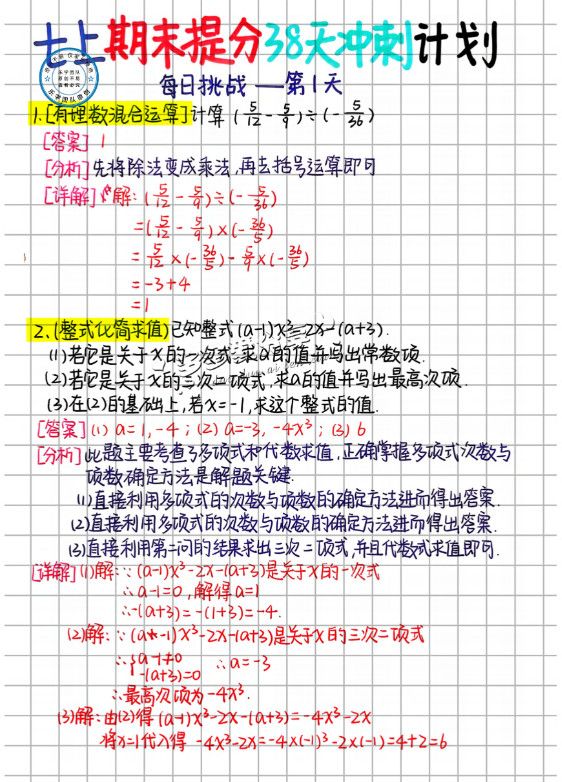 七上期末提分38天冲刺计划
每日挑战 — 第1天
1.[有理数混合运算]计算 (5/12 - 5/9) ÷ (- 5/36)
[答案] 1
[分析] 先将除法变成乘法,再去括号运算即可
[详解] 解: (5/12 - 5/9) ÷ (- 5/36)
= (5/12 - 5/9) × (- 36/5)
= 5/12 × (- 36/5) - 5/9 × (- 36/5)
= -3+4
= 1
2.(整式化简求值)已知整式 (a-1)x³-2x-(a+3).
(1)若它是关于x的一次式,求a的值并写出常数项.
(2)若它是关于x的三次二项式,求a的值并写出最高次项.
(3)在(2)的基础上,若x=-1,求这个整式的值.
[答案] (1) a=1, -4 ; (2) a=-3, -4x³ ; (3) 6
[分析] 此题主要考查了多项式和代数求值,正确掌握多项式次数与
项数确定方法是解题关键.
(1)直接利用多项式的次数与项数的确定方法进而得出答案.
(2)直接利用多项式的次数与项数的确定方法进而得出答案.
(3)直接利用第二问的结果求出三次二项式,并且代数式求值即可.
[详解] (1)解: ∵ (a-1)x³-2x-(a+3)是关于x的一次式
∴ a-1=0, 解得a=1
∴ -(a+3) = -(1+3) = -4.
(2)解: ∵ (a-1)x³-2x-(a+3)是关于x的三次二项式
∴ { a-1≠0
-(a+3)=0 ∴ a=-3
∴ 最高次项为-4x³.
(3)解: 由(2)得 (a-1)x³-2x-(a+3) = -4x³-2x
将x=1代入得 -4x³-2x=-4×(-1)³-2×(-1)=4+2=6